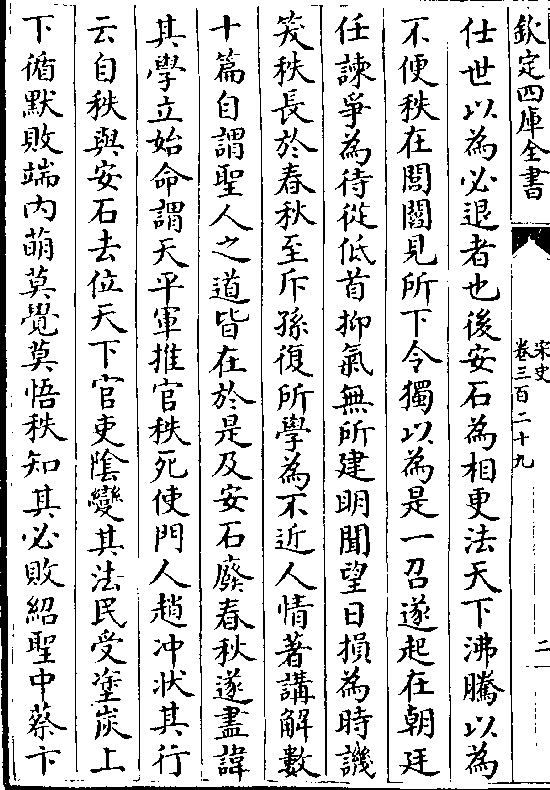 欽定四庫全書
宋史
卷三百二十九
二
仕世以為必退者也後安石為相更法天下沸騰以為
不便秩在閭閻見所下令獨以為是一召遂起在朝廷
任諫爭為待從低首抑氣無所建明聞望日損為時譏
笑秩長於春秋至斥孫復所學為不近人情著講解數
十篇自謂聖人之道皆在於是及安石廢春秋遂盡諱
其學立始命謂天平軍推官秩死使門人趙冲狀其行
云自秩與安石去位天下官吏陰變其法民受塗炭上
下循默敗端內萌莫覺莫悟秩知其必敗紹聖中蔡卞